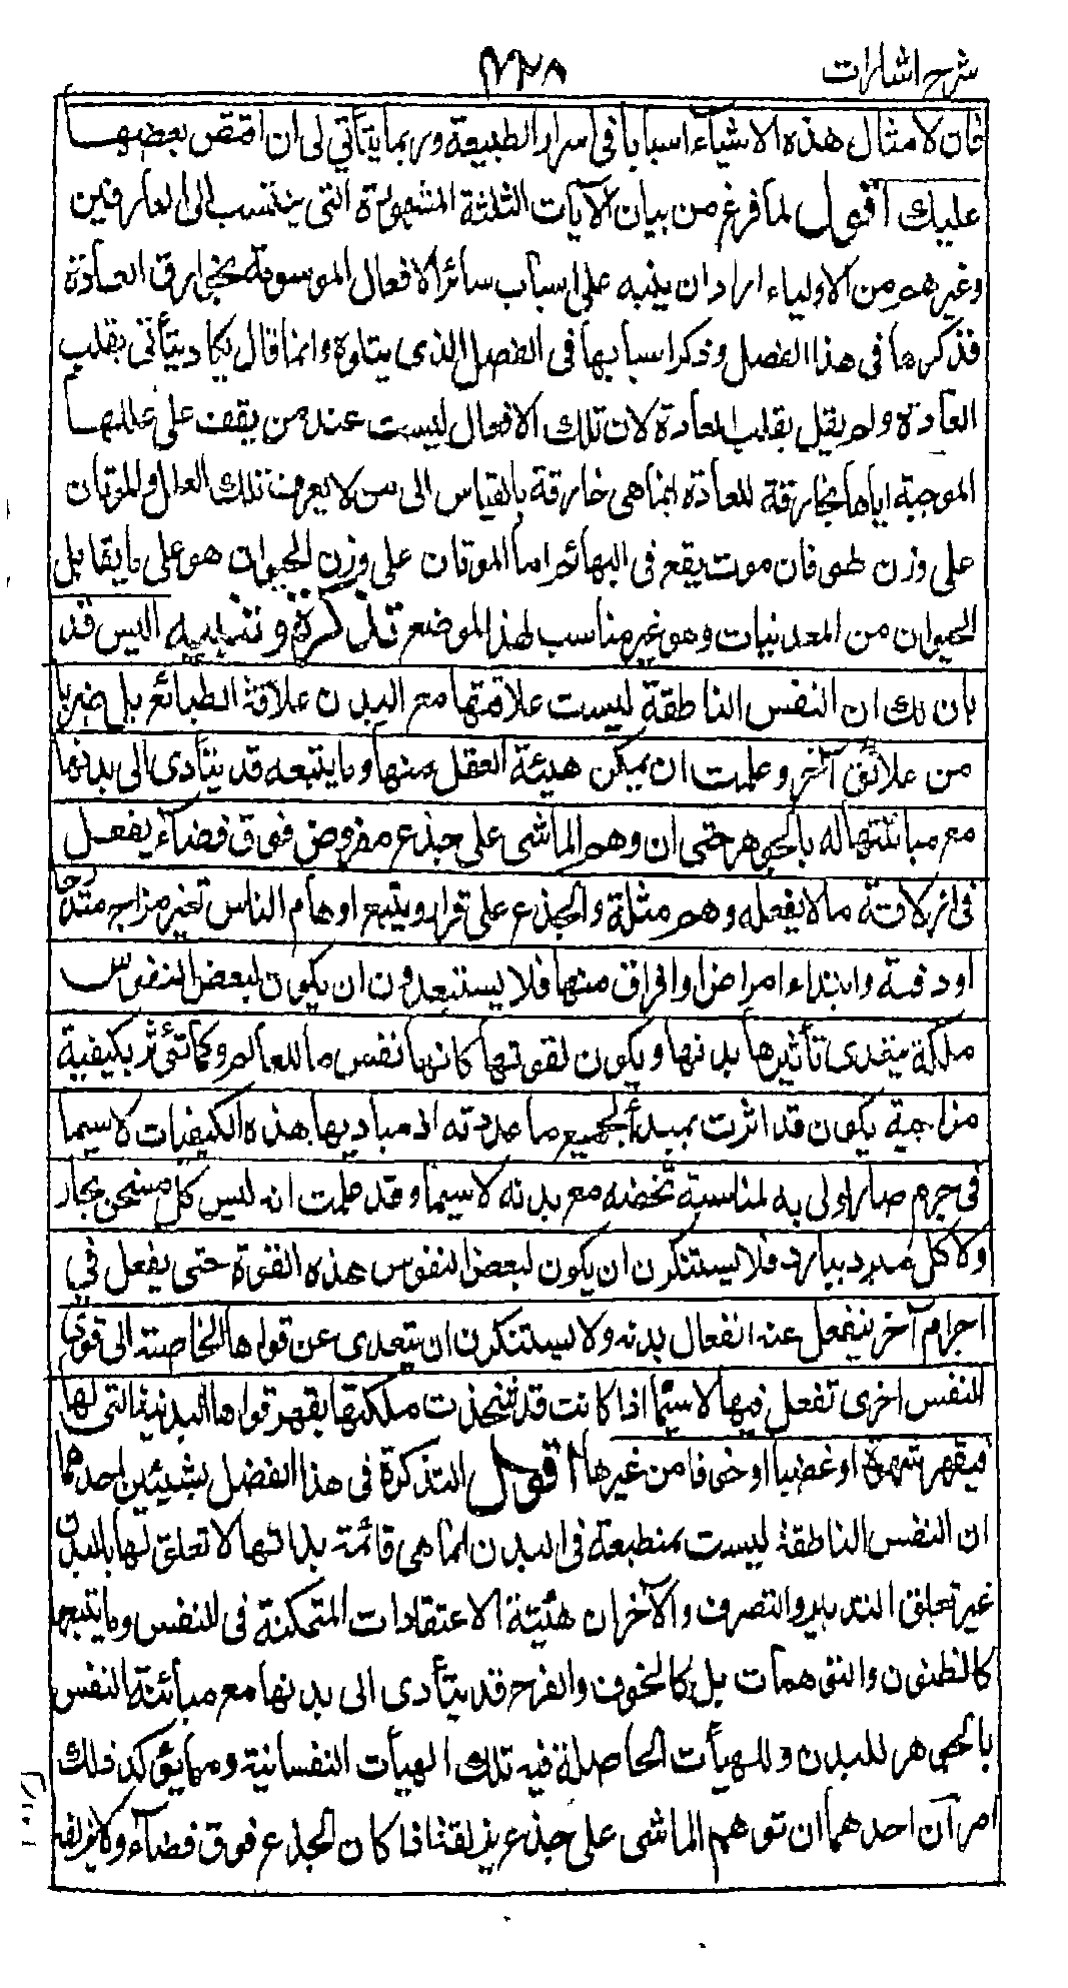 شرح اشارات
٢٢٨
فان لامثال هذه الاشیآء اسبابا فی اسرار الطبیعة وربما یتأتی لی ان اقتص بعضها
علیك اقول لما فرغ من بیان الآیات الثلثة المشهورة التی ینتسب الی العارفین
وغیرهم من الاولیاء اراد ان ینبه علی اسباب سائر الافعال الموسومة بخوارق العادة
فذکرها فی هذا الفصل وذکر اسبابها فی الفصل الذی یتلوه وانما قال یکاد یتأتی بقلب
العادة ولم یقل بقلب العادة لان تلك الافعال لیست عند من یقف علی عللها
الموجبة ایاها بخارقة للعادة انما هی خارقة بالقیاس الی من لا یعرف تلك العلل والموتان
علی وزن طوفان موت یقع فی البهائم اما الموتان علی وزن الحیوان هو علی ما یقابل
الحیوان من المعدنیات وهو غیر مناسب لهذا الموضع تذکرة وتنبیه الیس قد
بان لك ان النفس الناطقة لیست علاقتها مع البدن علاقة الطبائع بل ضربا
من علائق آخر وعلمت ان یمکن هیئة العقل منها وما یتبعه قد یتأدی الی بدنها
مع مبائنتها له بالجوهر حتی ان وهم الماشی علی جذع مفروض فوق فضآء یفعل
فی ازلاقه ما لا یفعله وهم مثلة والجذع علی قرار ویتبع اوهام الناس تغیر مزاج متدرجا
او دفعة وابتداء امراض او افراق منها فلا یستبعدون ان یکون لبعض النفوس
ملکة یتعدی تأثیرها بدنها ویکون لقوتها کانها نفس ما للعالم وکما تؤثر بکیفیة
مزاجیة یکون قد اثرت بمبدأ لجمیع ما عددته اذ مبادیها هذه الکیفیات لاسیما
فی جرم صار اولی به لمناسبة تخصه مع بدنه لاسیما وقد علمت انه لیس کل مسخن بحار
ولا کل مبرد ببارد فلا یستنکرن ان یکون لبعض النفوس هذه القوة حتی یفعل فی
اجرام آخر ینفعل عنه انفعال بدنه ولا یستنکرن ان یتعدی عن قواها الخاصة الی قوی
النفس اخری تفعل فیها لاسیما اذا کانت قد شحذت ملکتها بقهر قواها البدنیة التی لها
فیقهر شهوة او غضبا او خوفا من غیرها اقول التذکرة فی هذا الفصل بشیئین احدهما
ان النفس الناطقة لیست بمنطبعة فی البدن انما هی قائمة بذاتها لا تعلق لها بالبدن
غیر تعلق التدبیر والتصرف والآخر ان هیئة الاعتقادات المتمکنة فی النفس وما یتبعها
کالظنون والتوهمات بل کالخوف والفرح قد یتأدی الی بدنها مع مبائنة النفس
بالجوهر للبدن وللهیأت الحاصلة فیه تلك الهیأت النفسانیة ومما یؤکد ذلك
امر آن احدهما ان توهم الماشی علی جذع یزلقه اذا کان الجذع فوق فضآء ولا یزلقه